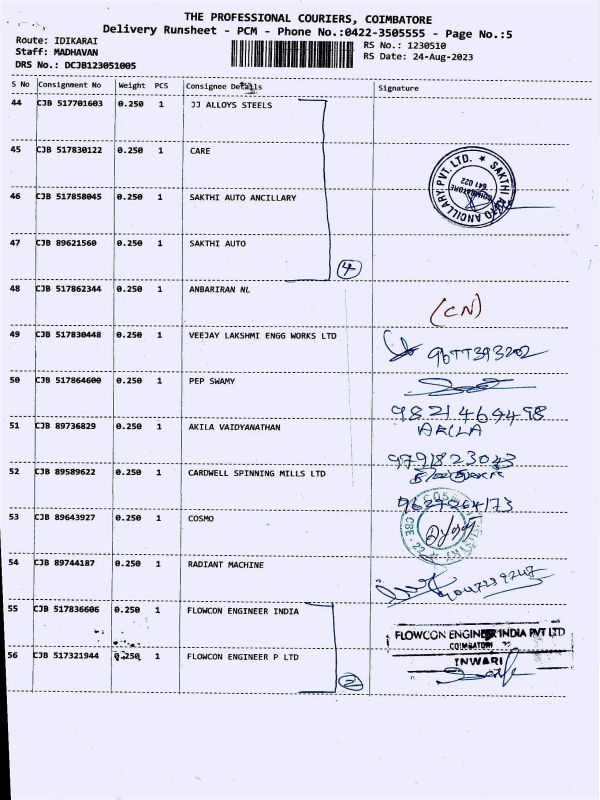 THE PROFESSIONAL COURIERS, COIMBATORE
Delivery Runsheet - PCM - Phone No.:0422-3505555 - Page No.:5
Route: IDIKARAI
RS No.: 1230510
Staff: MADHAVAN
RS Date: 24-Aug-2023
DRS No.: DCJB123051005
S No Consignment No Weight PCS Consignee Details Signature
44 CJB 517701603 0.250 1 JJ ALLOYS STEELS
45 CJB 517830122 0.250 1 CARE
SAKTHI AUTO ANCILLARY PVT. LTD. ★
COIMBATORE
641 022
46 CJB 517858045 0.250 1 SAKTHI AUTO ANCILLARY
47 CJB 89621560 0.250 1 SAKTHI AUTO
4
48 CJB 517862344 0.250 1 ANBARIRAN NL
(CN)
49 CJB 517830448 0.250 1 VEEJAY LAKSHMI ENGG WORKS LTD
9677393202
50 CJB 517864600 0.250 1 PEP SWAMY
9821464498
51 CJB 89736829 0.250 1 AKILA VAIDYANATHAN
AKILA
9791823043
52 CJB 89589622 0.250 1 CARDWELL SPINNING MILLS LTD
9627264173
53 CJB 89643927 0.250 1 COSMO
CBE - 22
54 CJB 89744187 0.250 1 RADIANT MACHINE
55 CJB 517836606 0.250 1 FLOWCON ENGINEER INDIA
FLOWCON ENGINEER INDIA PVT LTD
COIMBATORE
56 CJB 517321944 0.250 1 FLOWCON ENGINEER P LTD
INWARI
2